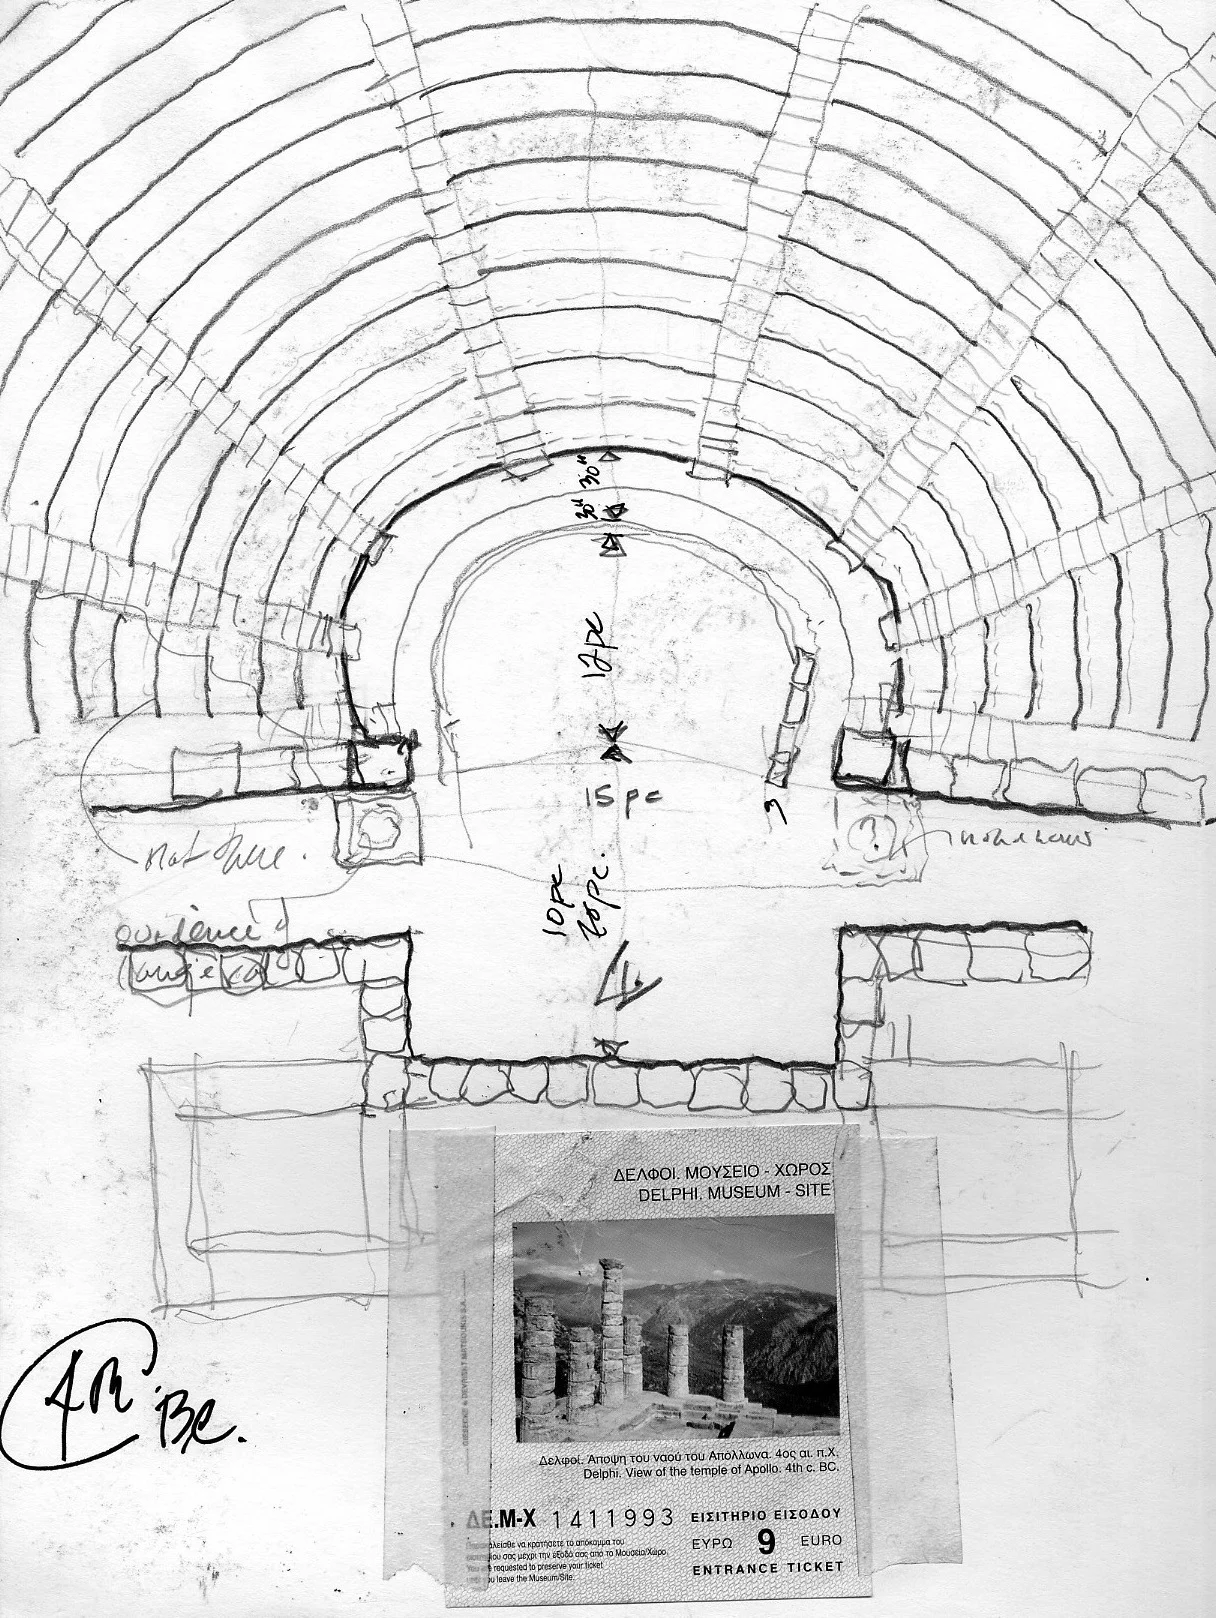 30" 30"
12pc
15pc
3
not here.
?
10pc
25pc.
audience
4.
ΔΕΛΦΟΙ. ΜΟΥΣΕΙΟ - ΧΩΡΟΣ
DELPHI. MUSEUM - SITE
Δελφοί. Άποψη του ναού του Απόλλωνα. 4ος αι. π.Χ.
Delphi. View of the temple of Apollo. 4th c. BC.
ΔΕ.Μ-Χ 1411993
ΕΙΣΙΤΗΡΙΟ ΕΙΣΟΔΟΥ
ΕΥΡΩ 9 EURO
ENTRANCE TICKET
να κρατήσετε το απόκομμα του
σας μέχρι την έξοδό σας από το Μουσείο/Χώρο.
requested to preserve your ticket
leave the Museum/Site.
4th BC.